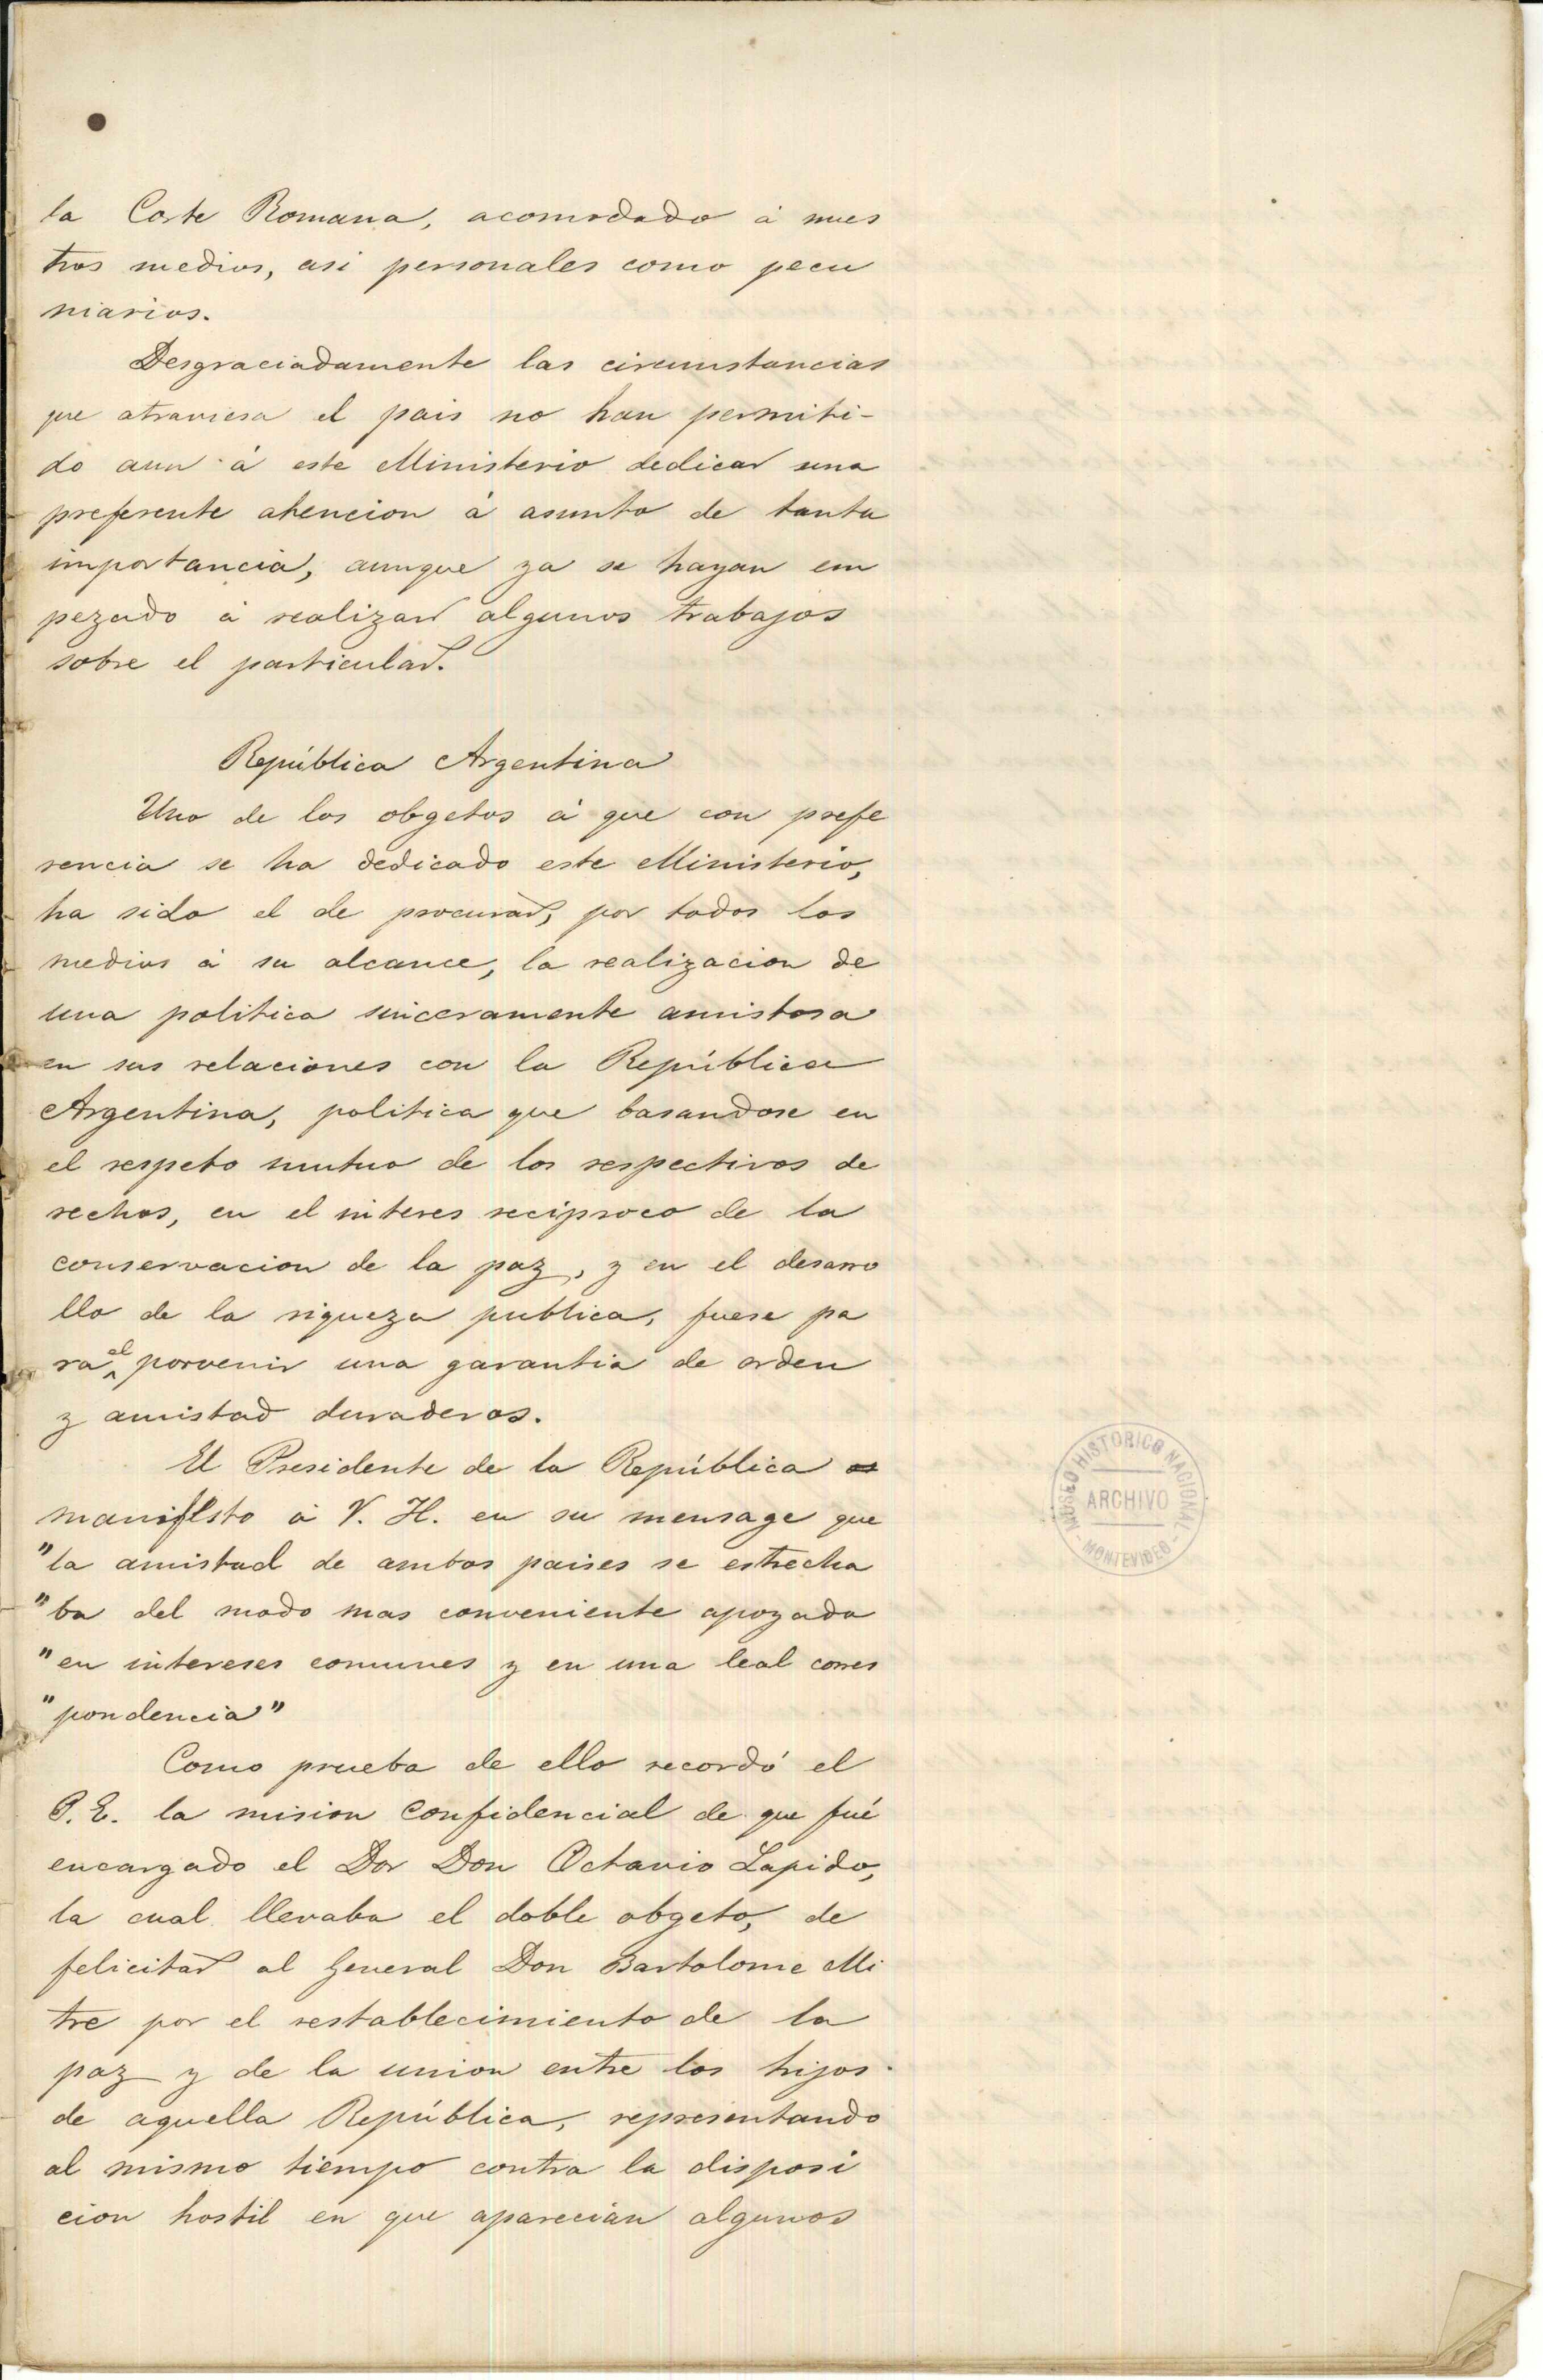 la Corte Romana, acomodado á nues
tros medios, asi personales como pecu
niarios.
Desgraciadamente las circunstancias
que atraviesa el pais no han permiti-
do aun á este Ministerio dedicar una
preferente atencion á asunto de tanta
importancia, aunque ya se hayan em
pezado á realizar algunos trabajos
sobre el particular.
República Argentina
Uno de los obgetos á que con prefe
rencia se ha dedicado este Ministerio,
ha sido el de procurar, por todos los
medios á su alcance, la realizacion de
una politica sinceramente amistosa
en sus relaciones con la República
Argentina, politica que basandose en
el respeto mutuo de los respectivos de
rechos, en el interes reciproco de la
conservacion de la paz, y en el desarro
llo de la riqueza publica, fuese pa
ra el porvenir una garantia de orden
y amistad duraderos.
El Presidente de la República
manifesto á V. H. en su mensage que
"la amistad de ambos paises se estrecha
"ba del modo mas conveniente apoyada
"en intereses comunes y en una leal corres
"pondencia"
Como prueba de ello recordó el
P. E. la mision confidencial de que fué
encargado el Dor Don Octavio Lapido,
la cual llevaba el doble obgeto, de
felicitar al General Don Bartolome Mi
tre por el restablecimiento de la
paz y de la union entre los hijos
de aquella República, representando
al mismo tiempo contra la disposi
cion hostil en que aparecian algunos
MUSEO HISTORICO NACIONAL
ARCHIVO
- MONTEVIDEO -